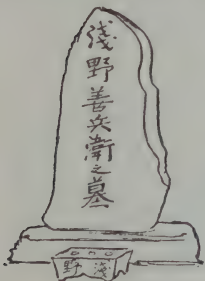 淺野善兵衛之墓
野淺